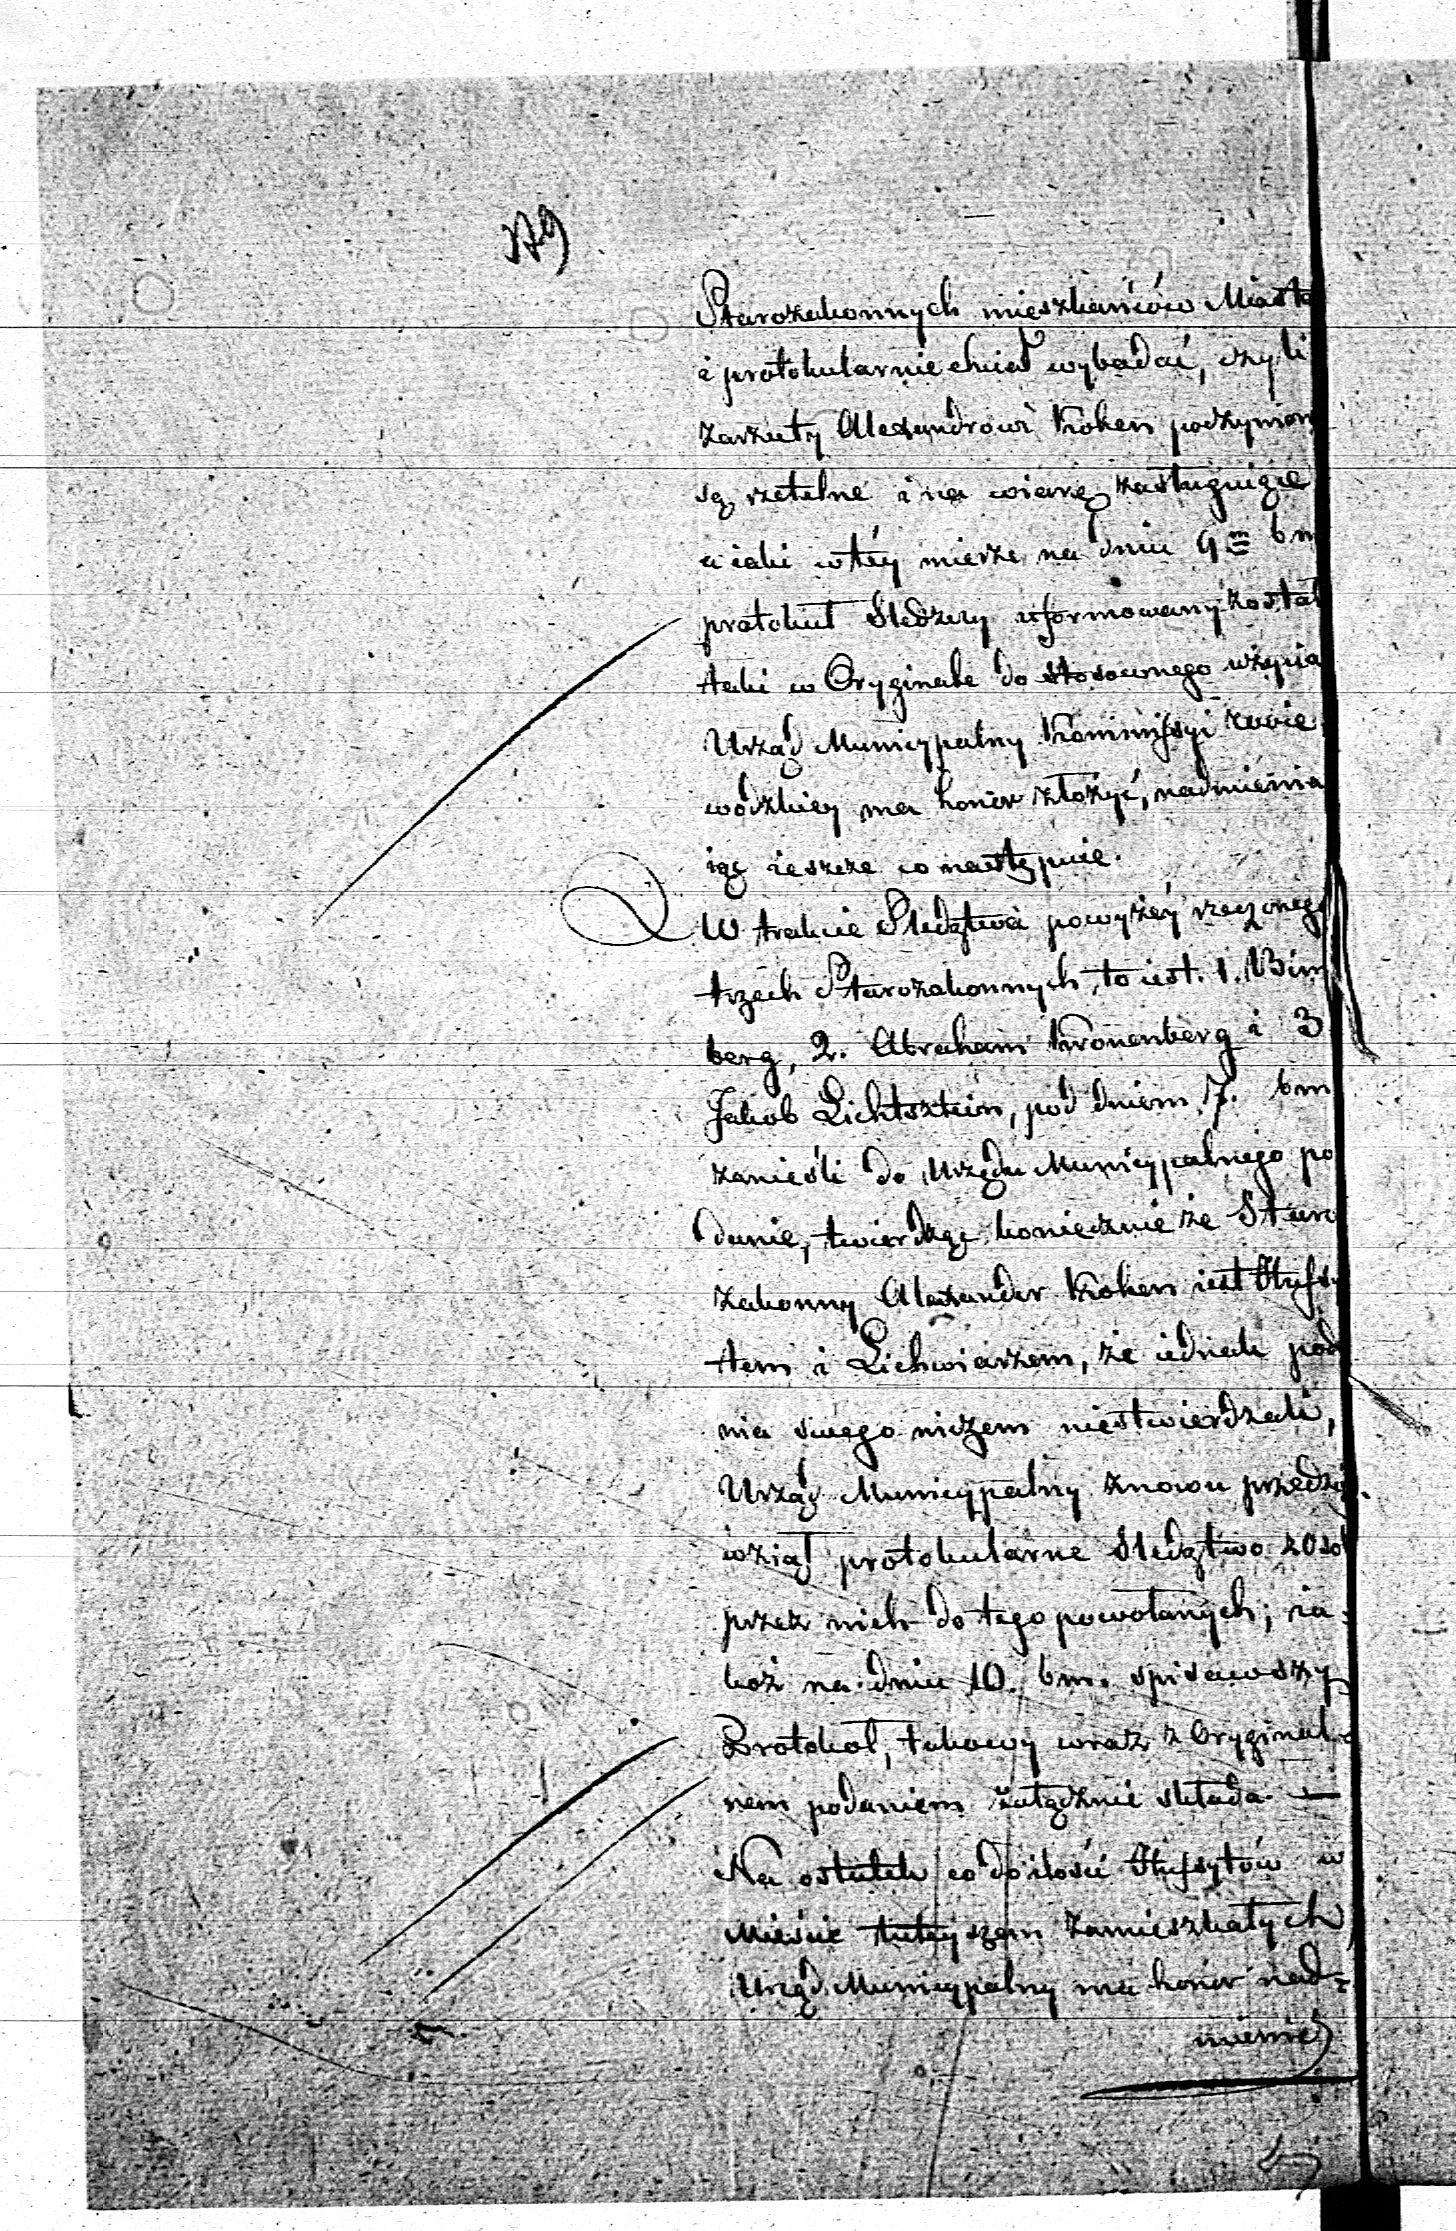 Starozakonnych mieszkańców Miasta
i protokularnie chciał wybadać, czyli
zarzuty Alexandrowi Kohen poczynion
są rzetelne i na wiarę zasługuiące
a iaki w téy mierze na dniu 9 m bm
protokuł Śledczy uformowany został
taki w Oryginale do stosownego użycia
Urząd Municypalny Kommissyi Woie
wódzkiey ma honor złożyć, nadmienia
iąc ieszcze co następuie.
W trakcie Śledztwa powyżéy rzeczonego
trzech Starozakonnych, to iest. 1. Birn
berg, 2. Abraham Kronenberg i 3
Jakob Lichtsztein, pod dniem 7. bm
zanieśli do Urzędu Municypalnego po
danie, twierdząc koniecznie że Staro
zakonny Alexander Kohen iest Hussy
tem i Lichwiarzem, że iednak poda
nia swego niczem niestwierdzali,
Urząd Municypalny znowu przedsię
wziął protokularne Śledztwo z osób
przez nich do tego powołanych; ia-
koż na dniu 10. bm. spisawszy
Protokoł, takowy wraz z Oryginal-
nem podaniem załącznie składa. —
Na ostatek co do ilości Hussytów w
Mieście tuteyszem zamieszkałych
Urząd Municypalny ma honor nad-
mienić